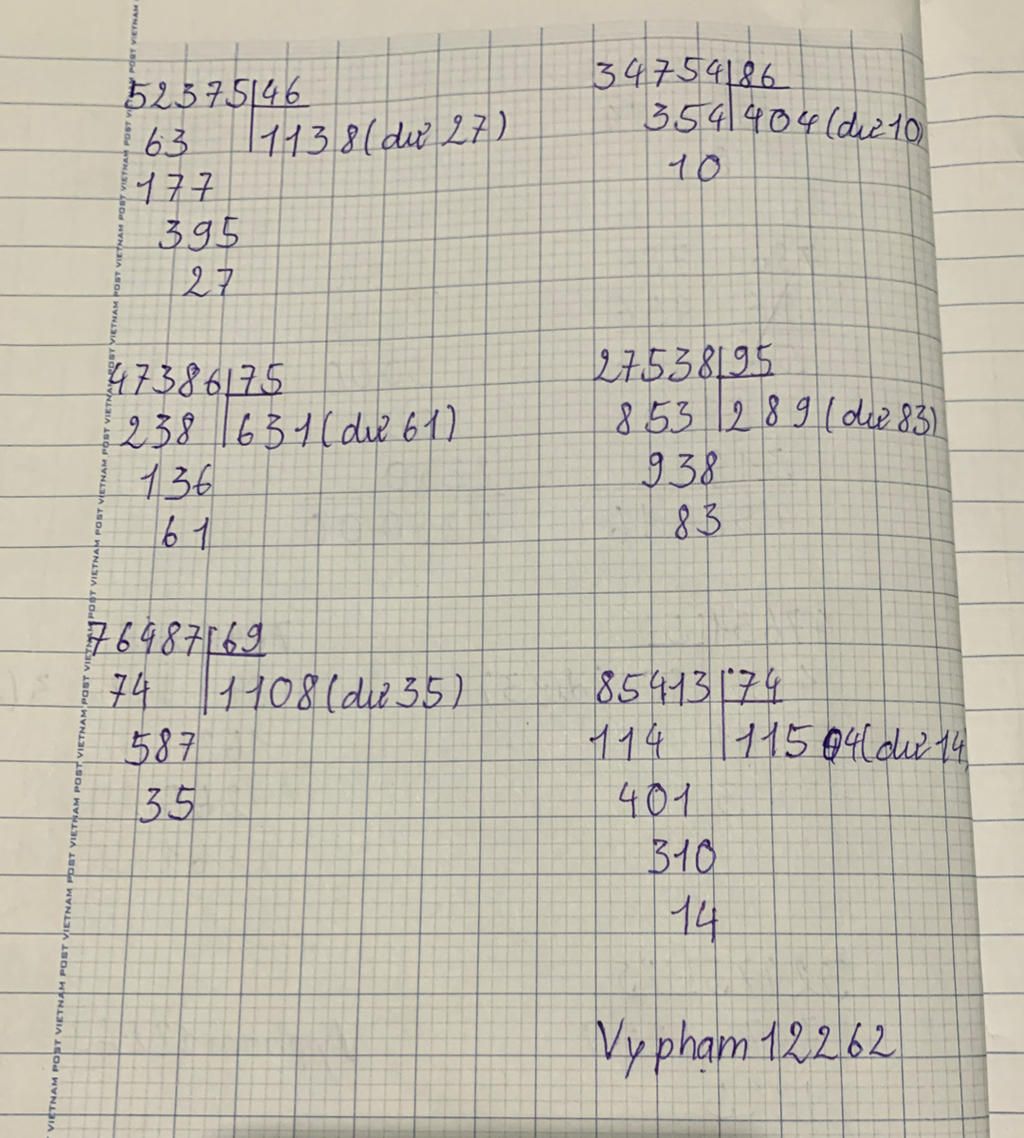 52375 46
63 1138 (dư 27)
177
395
27
34754 86
354 404 (dư 10)
10
47386 75
238 631 (dư 61)
136
61
27538 95
853 289 (dư 83)
938
83
76487 69
74 1108 (dư 35)
587
35
85413 74
114 115 04 (dư 14)
401
310
14
Vy phạm 12262
VIETNAM POST VIETNAM POST VIETNAM POST VIETNAM POST VIETNAM POST VIETNAM POST VIETNAM POST VIETNAM POST VIETNAM POST VIETNAM